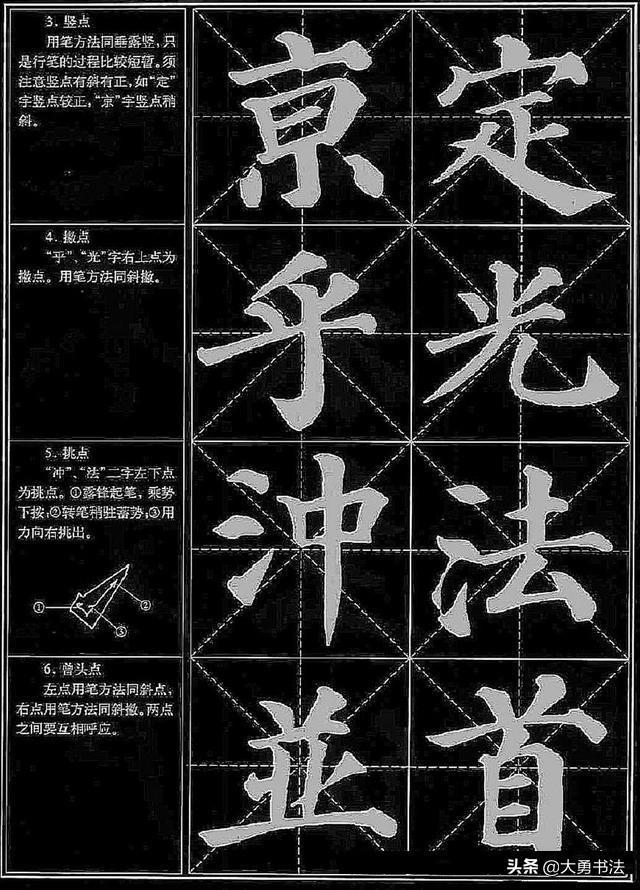 3. 竖点
用笔方法同垂露竖,只
是行笔的过程比较短暂。须
注意竖点有斜有正,如“定”
字竖点较正,“京”字竖点稍
斜。
亰 定
4. 撇点
“乎”、“光”字右上点为
撇点。用笔方法同斜撇。
乎 光
5. 挑点
“冲”、“法”二字左下点
为挑点。①露锋起笔,乘势
下按;②转笔稍驻蓄势;③用
力向右挑出。
① ② ③
冲 法
6. 曾头点
左点用笔方法同斜点,
右点用笔方法同斜撇。两点
之间要互相呼应。
並 首
头条 @大勇书法